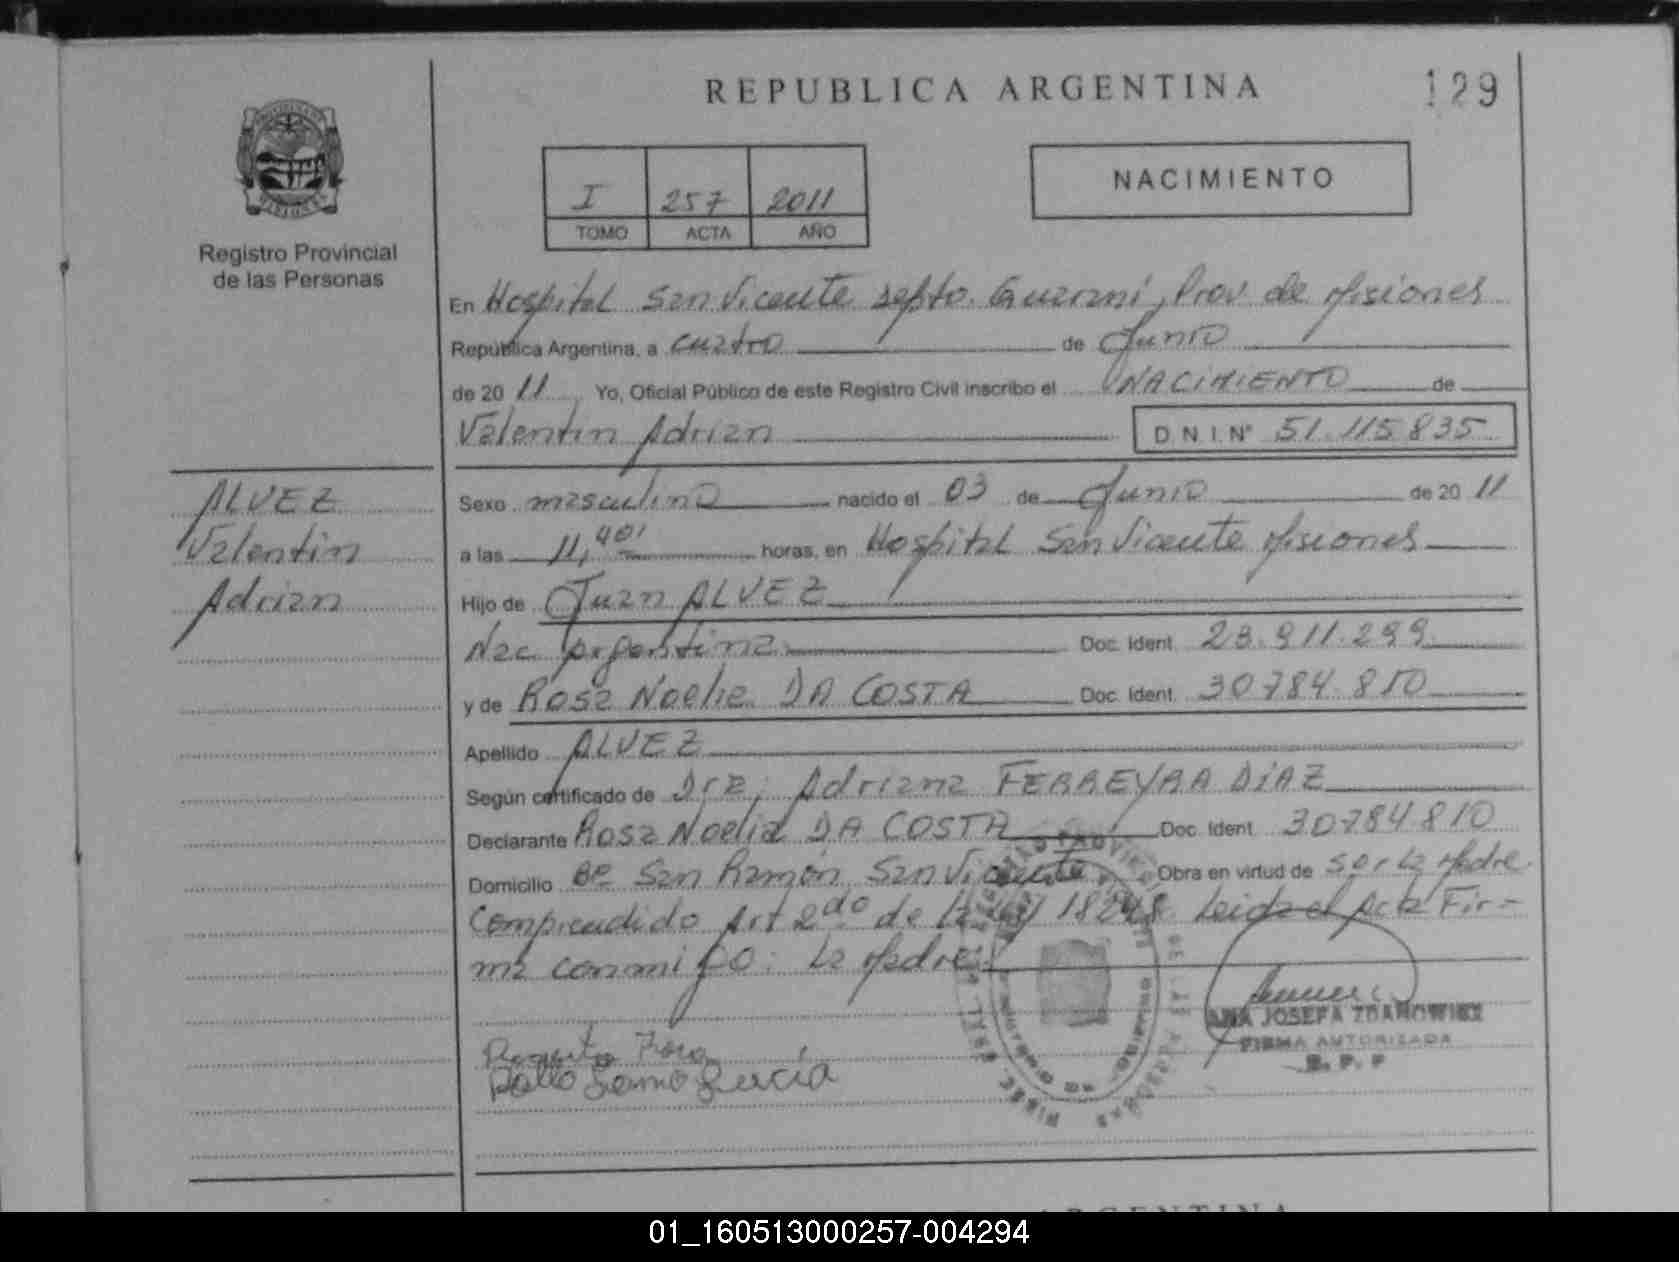 REPUBLICA ARGENTINA
129
I 257 2011
TOMO ACTA AÑO
NACIMIENTO
Registro Provincial
de las Personas
En Hospital San Vicente Depto. Guarani, Prov de Misiones
República Argentina, a cuatro de Junio
de 20 11 Yo, Oficial Público de este Registro Civil inscribo el NACIMIENTO de
Valentin Adrian D.N.I. Nº 51.115.835
ALVEZ
Valentin
Adrian
Sexo masculino nacido el 03 de Junio de 20 11
a las 11,40' horas, en Hospital San Vicente Misiones
Hijo de Juan ALVEZ
Nac Argentina Doc. Ident. 23.911.299
y de Rosa Noelie DA COSTA Doc. Ident. 30784.810
Apellido ALVEZ
Según certificado de Dra, Adriana FERREYRA DIAZ
Declarante Rosa Noelia DA COSTA Doc. Ident. 30784810
Domicilio Bº San Ramón San Vicente Obra en virtud de ser la Madre
Comprendido Art 2do de la Ley 18248 Leida el Acta Fir=
ma conmigo: la Madre
ANA JOSEFA ZDANOWIEZ
FIRMA AUTORIZADA
R. P. P
ARGENTINA
01_160513000257-004294